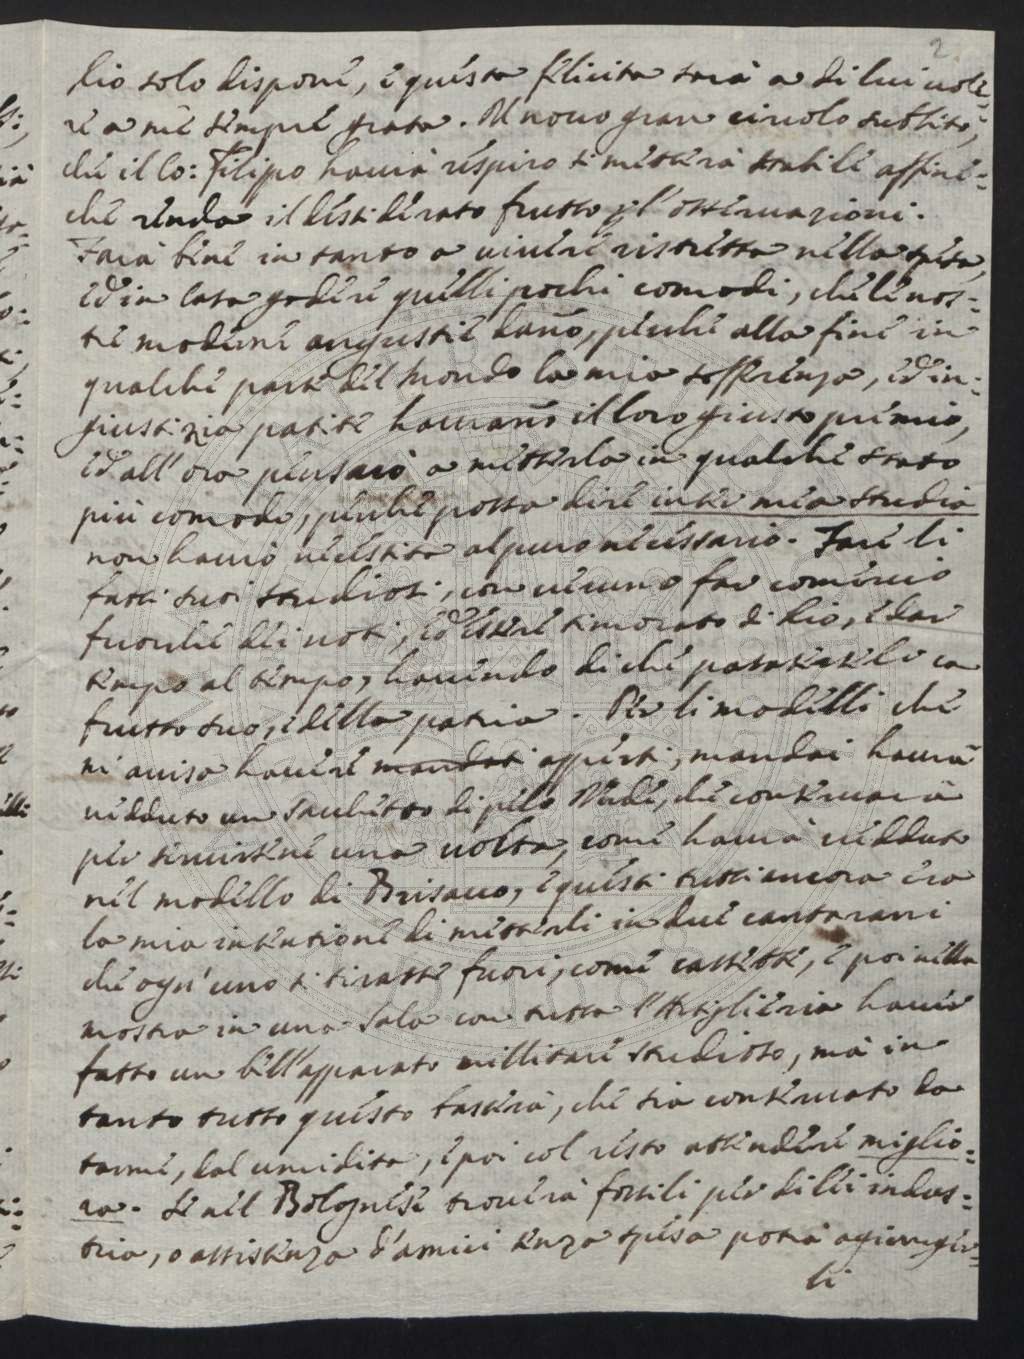 2
Dio solo disponi, e questa felicita sarà a di lui vole-
re a me sempre grata. Il novo gran circolo subbito,
che il Co: Filipo havrà respiro si metterà stabile affine-
che renda il desiderato frutto p l'osservazioni.
Farà bene in tanto a vivere ristretta nella spesa,
ed in casa godere quelli pochi comodi, che le nos-
tre moderne angustie dano, perche alla fine in
qualche parte del Mondo la mia sofferenza, ed in-
giustizia patite havrano il loro giusto premio,
ed all'ora pensarò a metterla in qualche stato
più comodo, perche possa dire inter mea studia
non havrò necessita al puro necessario. Fare li
fatti suoi studiosi, con veruno far comercio
fuorche dei noti, ed essere timorato di Dio, e dar
tempo al tempo, havendo di che passarselo con
frutto suo, e della patria. Per li modelli che
mi avisa havere mandati apperti, mandai havrà
vedduto un Sacchetto di pelo Verde, che conservarà
per servirsene una volta, come havrà vedduto
nel modello di Brisacco, e questi tutti ancora era
la mia intentione di metterli in due cantarani
che ogn'uno si tirasse fuori, come cassette, e poi nella
mostra in una Sala con tutta l'Artiglieria havrei
fatto un bell'apparato millitare studioso, mà in
tanto tutto questo basterà, che sia conservato da
tarme, dal umidita, e poi col resto attendere miglio-
ra. Se nel Bolognese troverà fossili per di lei indus-
tria, o assistenza d'amici senza spesa potrà agiunger-
li